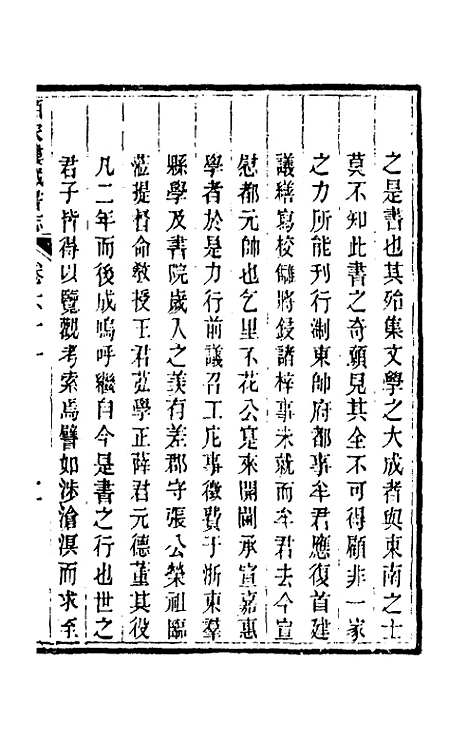 之是書也其殆集文學之大成者與東南之士
莫不知此書之奇願見其全不可得顧非一家
之力所能刊行浙東帥府都事牟君應復首建
議繕寫校讎將鋟諸梓事未就而牟君去今宣
慰都元帥也乞里不花公寔來開閫承宣嘉惠
學者於是力行前議召工庀事徵費于浙東羣
縣學及書院歲入之羨有差郡守張公榮祖臨
蒞提督命敎授王君苃學正薛君元德董其役
凡二年而後成嗚呼繼自今是書之行也世之
君子皆得以覽觀考索焉譬如涉滄溟而求至
宋樓藏書志
卷六十一